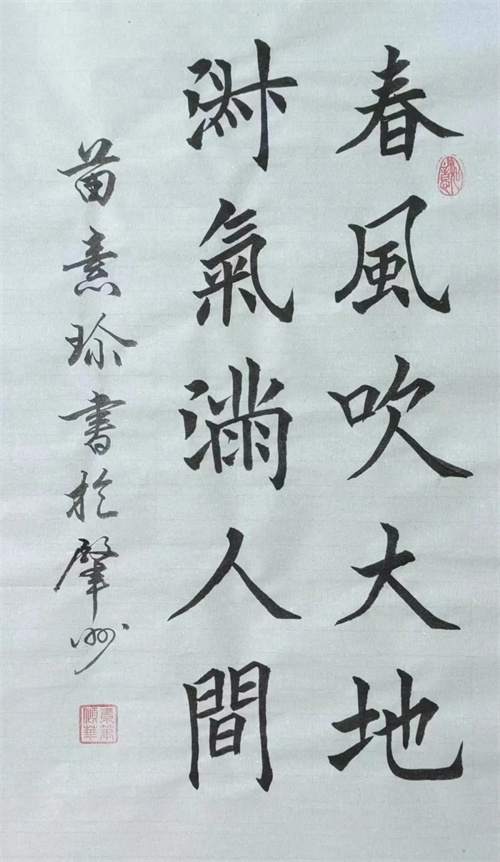 春風吹大地
淑氣滿人間
苗素珍書於肇州